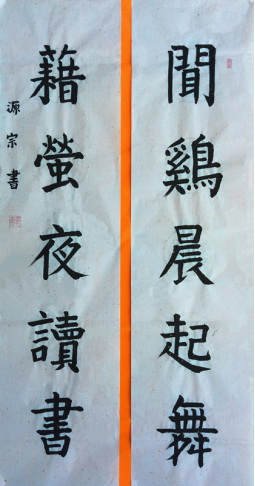 聞鷄晨起舞
藉螢夜讀書
源宗書